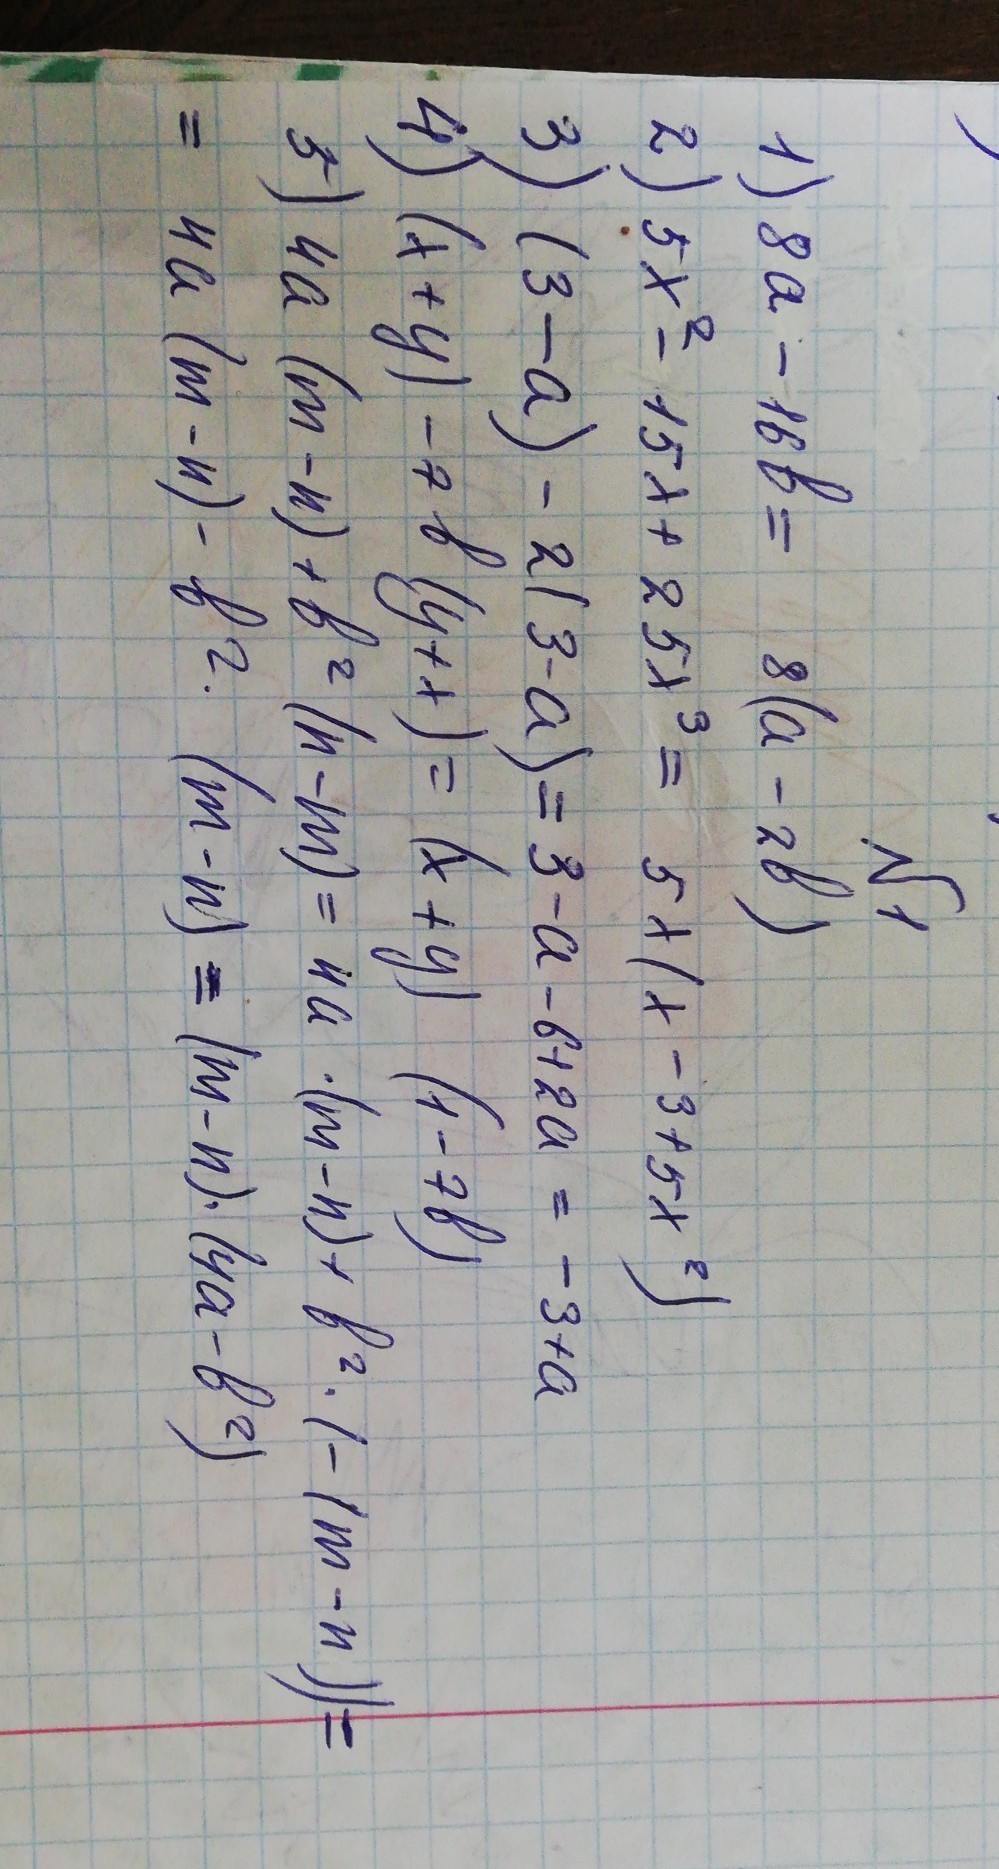 №1
1) 8a - 16b = 8(a - 2b)
2) 5x² - 15x + 25x³ = 5x(x - 3 + 5x²)
3) (3 - a) - 2(3 - a) = 3 - a - 6 + 2a = -3 + a
4) (x + y) - 7b(y + x) = (x + y) (1 - 7b)
5) 4a (m - n) + b² (n - m) = 4a · (m - n) + b² · (-(m - n)) =
= 4a (m - n) - b² · (m - n) = (m - n) · (4a - b²)